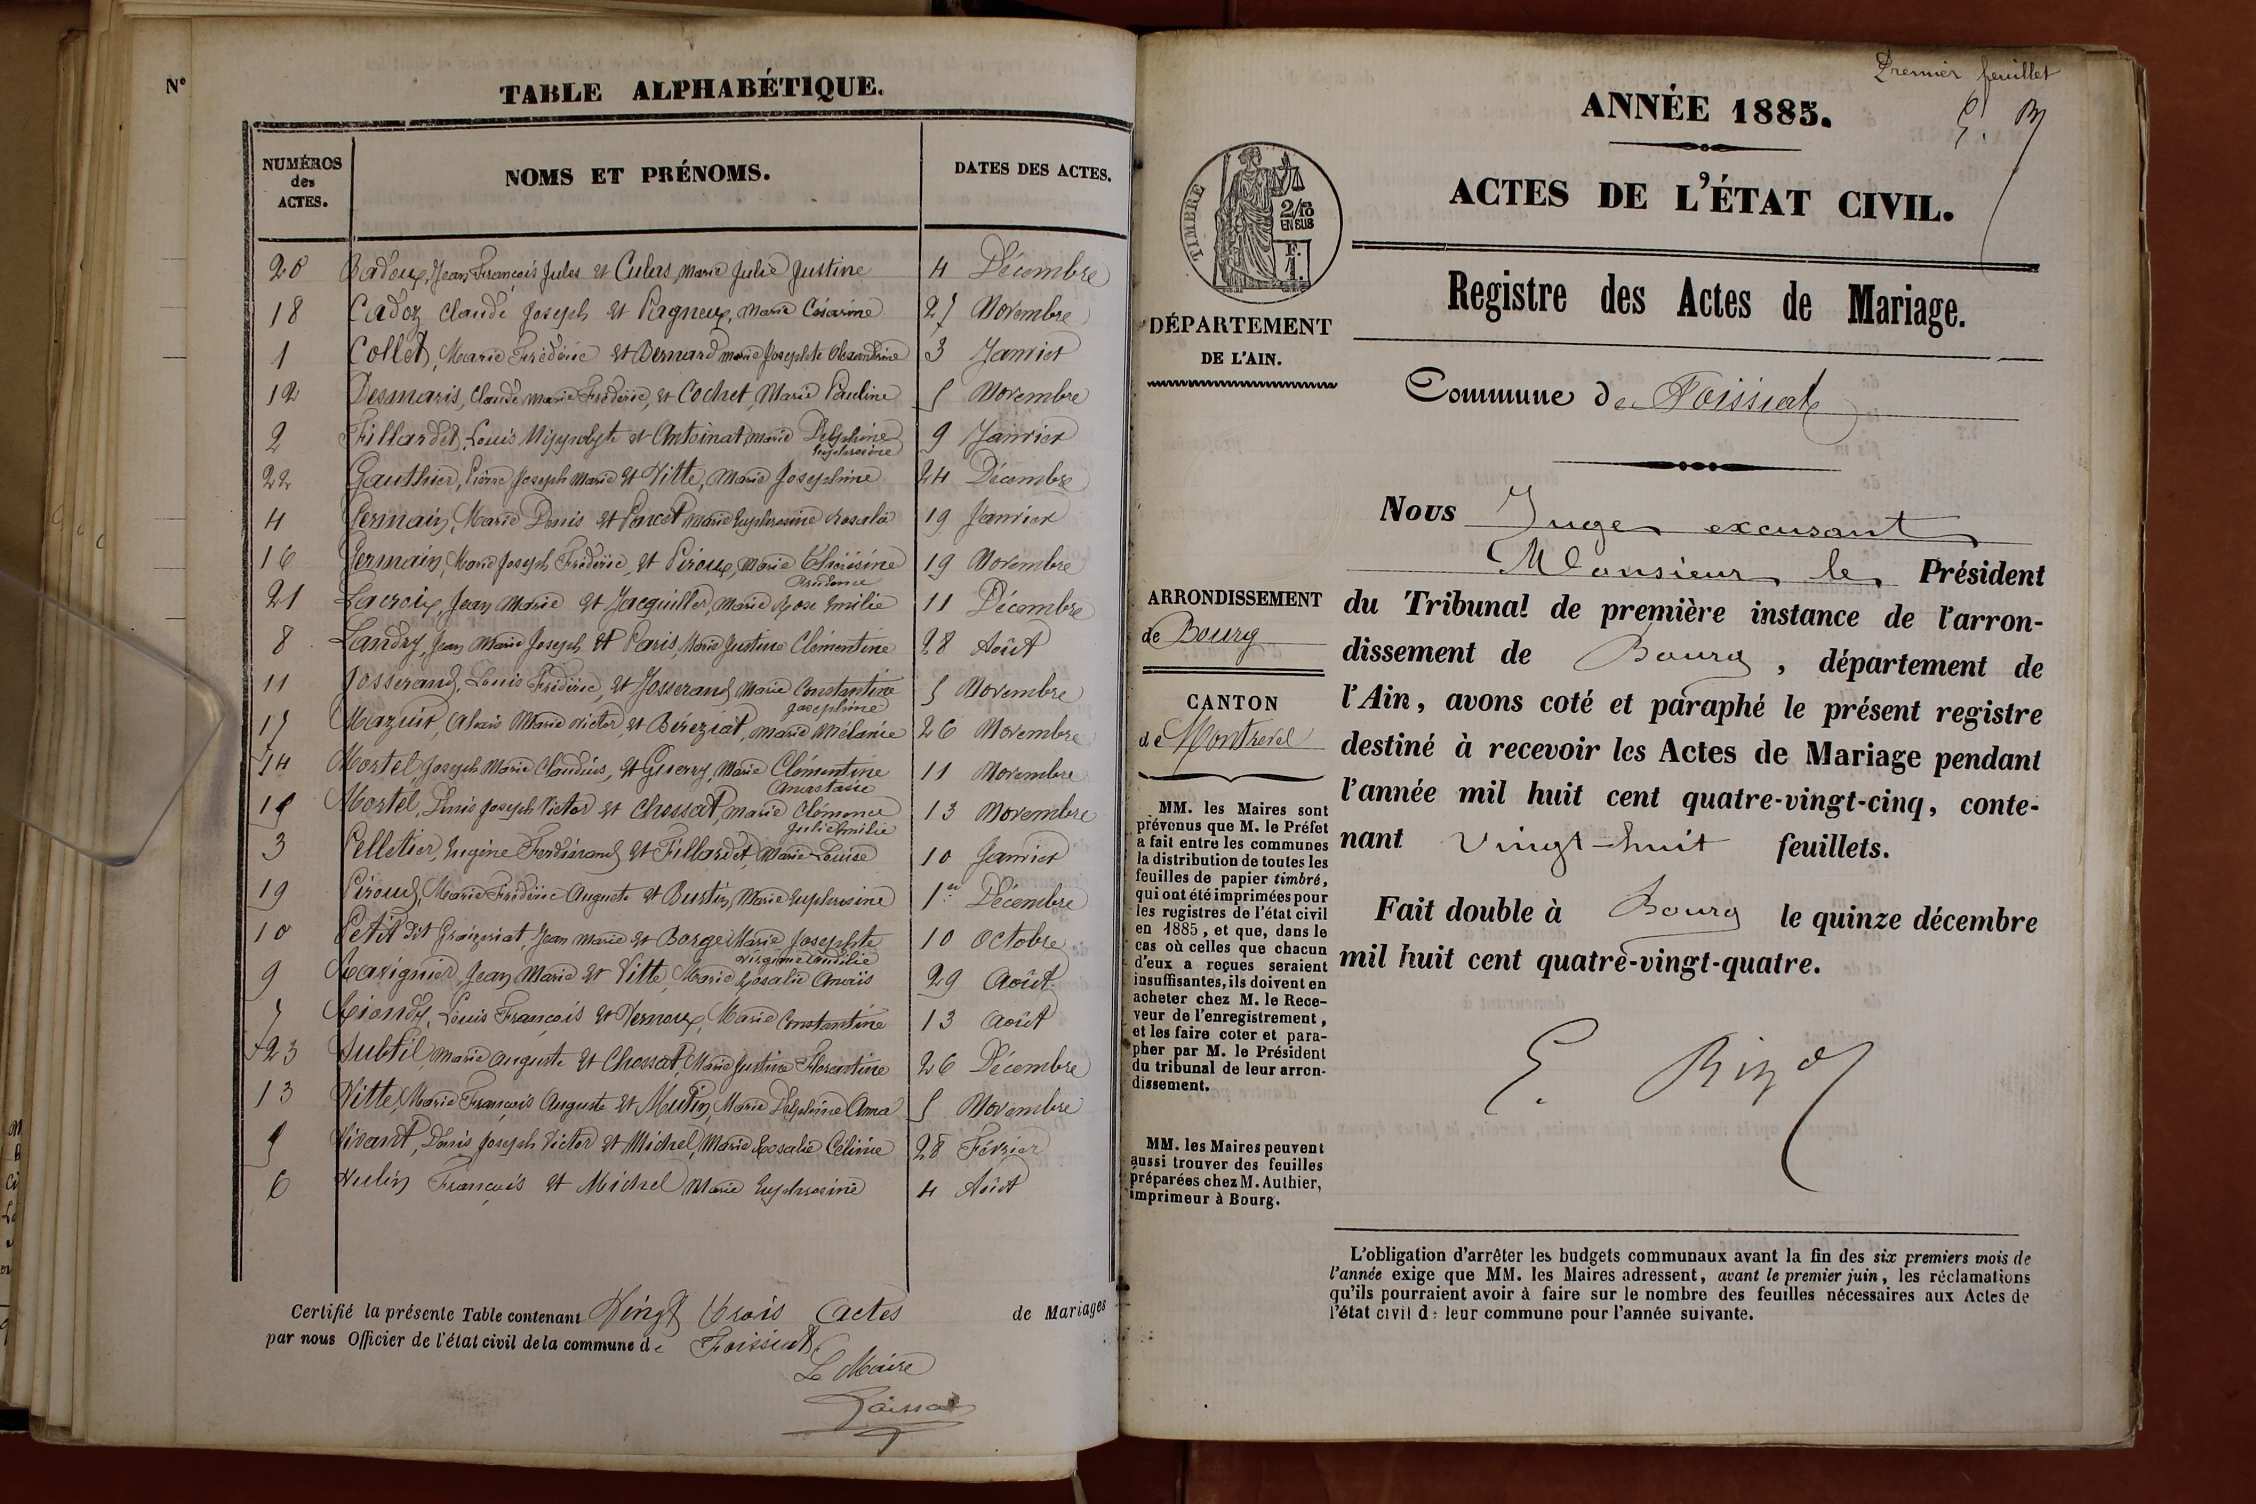 N°
TABLE ALPHABÉTIQUE.
NUMÉROS des ACTES.
NOMS ET PRÉNOMS.
DATES DES ACTES.
20 Badoux, Jean François Jules et Culas, Marie Julie Justine 4 Décembre
18 Cadoz Claude Joseph et Pagneux, Marie Césarine 27 Novembre
1 Collet, Marie Frédéric et Bernard Marie Josephte Alexandrine 3 Janvier
12 Desmaris, Claude Marie Frédéric, et Cochet, Marie Pauline 5 Novembre
2 Fillardet, Louis Hippolyte et Antoinat, Marie Delphine 9 Janvier
Euphrosine
22 Gauthier, Pierre Joseph Marie et Vitte, Marie Josephine 24 Décembre
4 Germain, Marie Denis et Poncet, Marie Euphrosine Rosalie 19 Janvier
16 Germain, Marie Joseph Frédéric, et Piroux, Marie 19 Novembre
Prudence
21 Lacroix, Jean Marie et Jacquillet, Marie Rose Emilie 11 Décembre
8 Landry, Jean Marie Joseph et Paris, Marie Justine Clémentine 28 Août
11 Josserand, Louis Frédéric, et Josserand, Marie Constantine 5 Novembre
Josephine
17 Mazuir, Alexis Marie Victor, et Béréziat, Marie Mélanie 26 Novembre
14 Mortel, Joseph Marie Claudius, et Guerry, Marie Clémentine 11 Novembre
Anastasie
15 Mortel, Denis Joseph Victor et Chossat, Marie Clémence 13 Novembre
Julie Emilie
3 Pelletier, Eugène Ferdinand et Fillardet, Marie Louise 10 Janvier
19 Piroud, Marie Frédéric Auguste et Burtin, Marie Euphrosine 1er Décembre
10 Petit dit Jean Marie et Borge Marie Josephte 10 Octobre
Virginie
9 Ravignier, Jean Marie et Vitte, Marie Rosalie Anaïs 29 Août
7 Riondy, Louis François et Vernoux, Marie Constantine 13 Août
23 Subtil, Marie Auguste et Chossat, Marie Justine Florentine 26 Décembre
13 Vitte, Marie François Auguste et Mutin, Marie Delphine Ama 5 Novembre
5 Vivant, Denis Joseph Victor et Michel, Marie Rosalie Célinie 28 Février
6 Vulin François et Michel Marie Euphrosine 4 Août
Certifié la présente Table contenant Vingt trois actes de Mariages
par nous Officier de l'état civil de la commune de Foissiat
Le Maire
Premier feuillet
E. B
ANNÉE 1885.
ACTES DE L'ÉTAT CIVIL.
TIMBRE
2/10
EN SUS
F.
1.
Registre des Actes de Mariage.
DÉPARTEMENT
DE L'AIN.
Commune de Foissiat
Nous Juge excusant
Monsieur le Président
du Tribunal de première instance de l'arron-
dissement de Bourg, département de
l'Ain, avons coté et paraphé le présent registre
destiné à recevoir les Actes de Mariage pendant
l'année mil huit cent quatre-vingt-cinq, conte-
nant vingt-huit feuillets.
Fait double à Bourg le quinze décembre
mil huit cent quatre-vingt-quatre.
ARRONDISSEMENT
de Bourg
CANTON
de Montrevel
MM. les Maires sont
prévenus que M. le Préfet
a fait entre les communes
la distribution de toutes les
feuilles de papier timbré,
qui ont été imprimées pour
les registres de l'état civil
en 1885, et que, dans le
cas où celles que chacun
d'eux a reçues seraient
insuffisantes, ils doivent en
acheter chez M. le Rece-
veur de l'enregistrement,
et les faire coter et para-
pher par M. le Président
du tribunal de leur arron-
dissement.
MM. les Maires peuvent
aussi trouver des feuilles
préparées chez M. Authier,
imprimeur à Bourg.
L'obligation d'arrêter les budgets communaux avant la fin des six premiers mois de
l'année exige que MM. les Maires adressent, avant le premier juin, les réclamations
qu'ils pourraient avoir à faire sur le nombre des feuilles nécessaires aux Actes de
l'état civil de leur commune pour l'année suivante.